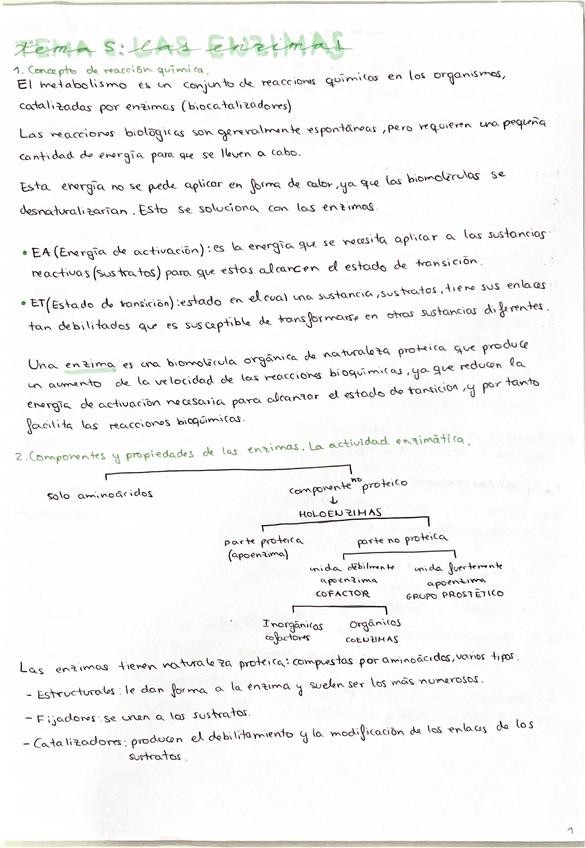 Tema 5: las enzimas
1. Concepto de reacción química.
El metabolismo es un conjunto de reacciones químicas en los organismos,
catalizadas por enzimas (biocatalizadores)
Las reacciones biológicas son generalmente espontáneas, pero requieren una pequeña
cantidad de energía para que se lleven a cabo.
Esta energía no se puede aplicar en forma de calor, ya que las biomoléculas se
desnaturalizarían. Esto se soluciona con las enzimas.
• EA (Energía de activación): es la energía que se necesita aplicar a las sustancias
reactivas (sustratos) para que estas alcancen el estado de transición.
• ET (Estado de transición): estado en el cual una sustancia, sustratos, tiene sus enlaces
tan debilitados que es susceptible de transformarse en otras sustancias diferentes.
Una enzima es una biomolécula orgánica de naturaleza proteica que produce
un aumento de la velocidad de las reacciones bioquímicas, ya que reducen la
energía de activación necesaria para alcanzar el estado de transición, y por tanto
facilita las reacciones bioquímicas.
2. Componentes y propiedades de las enzimas. La actividad enzimática.
solo aminoácidos
componente no proteico
↓
HOLOENZIMAS
parte proteica
(apoenzima)
parte no proteica
unida débilmente
apoenzima
COFACTOR
unida fuertemente
apoenzima
GRUPO PROSTÉTICO
Inorgánicos
cofactores
Orgánicos
COENZIMAS
Las enzimas tienen naturaleza proteica: compuestas por aminoácidos, varios tipos.
- Estructurales: le dan forma a la enzima y suelen ser los más numerosos.
- Fijadores: se unen a los sustratos.
- Catalizadores: producen el debilitamiento y la modificación de los enlaces de los
sustratos.
1